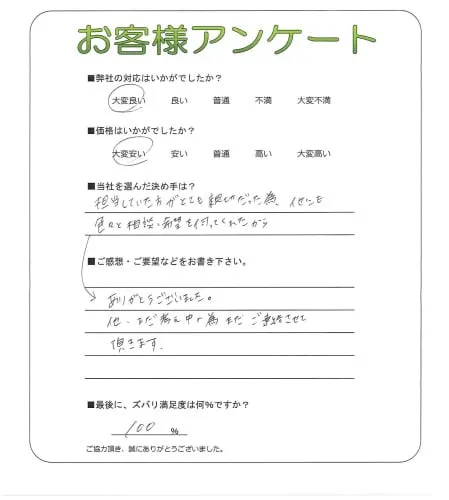 お客様アンケート
■弊社の対応はいかがでしたか？
大変良い 良い 普通 不満 大変不満
■価格はいかがでしたか？
大変安い 安い 普通 高い 大変高い
■当社を選んだ決め手は？
担当していた方がとても親切だった為、他にも
色々と相談・希望を付ってくれたから
■ご感想・ご要望などをお書き下さい。
ありがとうございました。
他、まだ考え中の為まだご連絡させて
頂きます、
■最後に、ズバリ満足度は何％ですか？
100 ％
ご協力頂き、誠にありがとうございました。